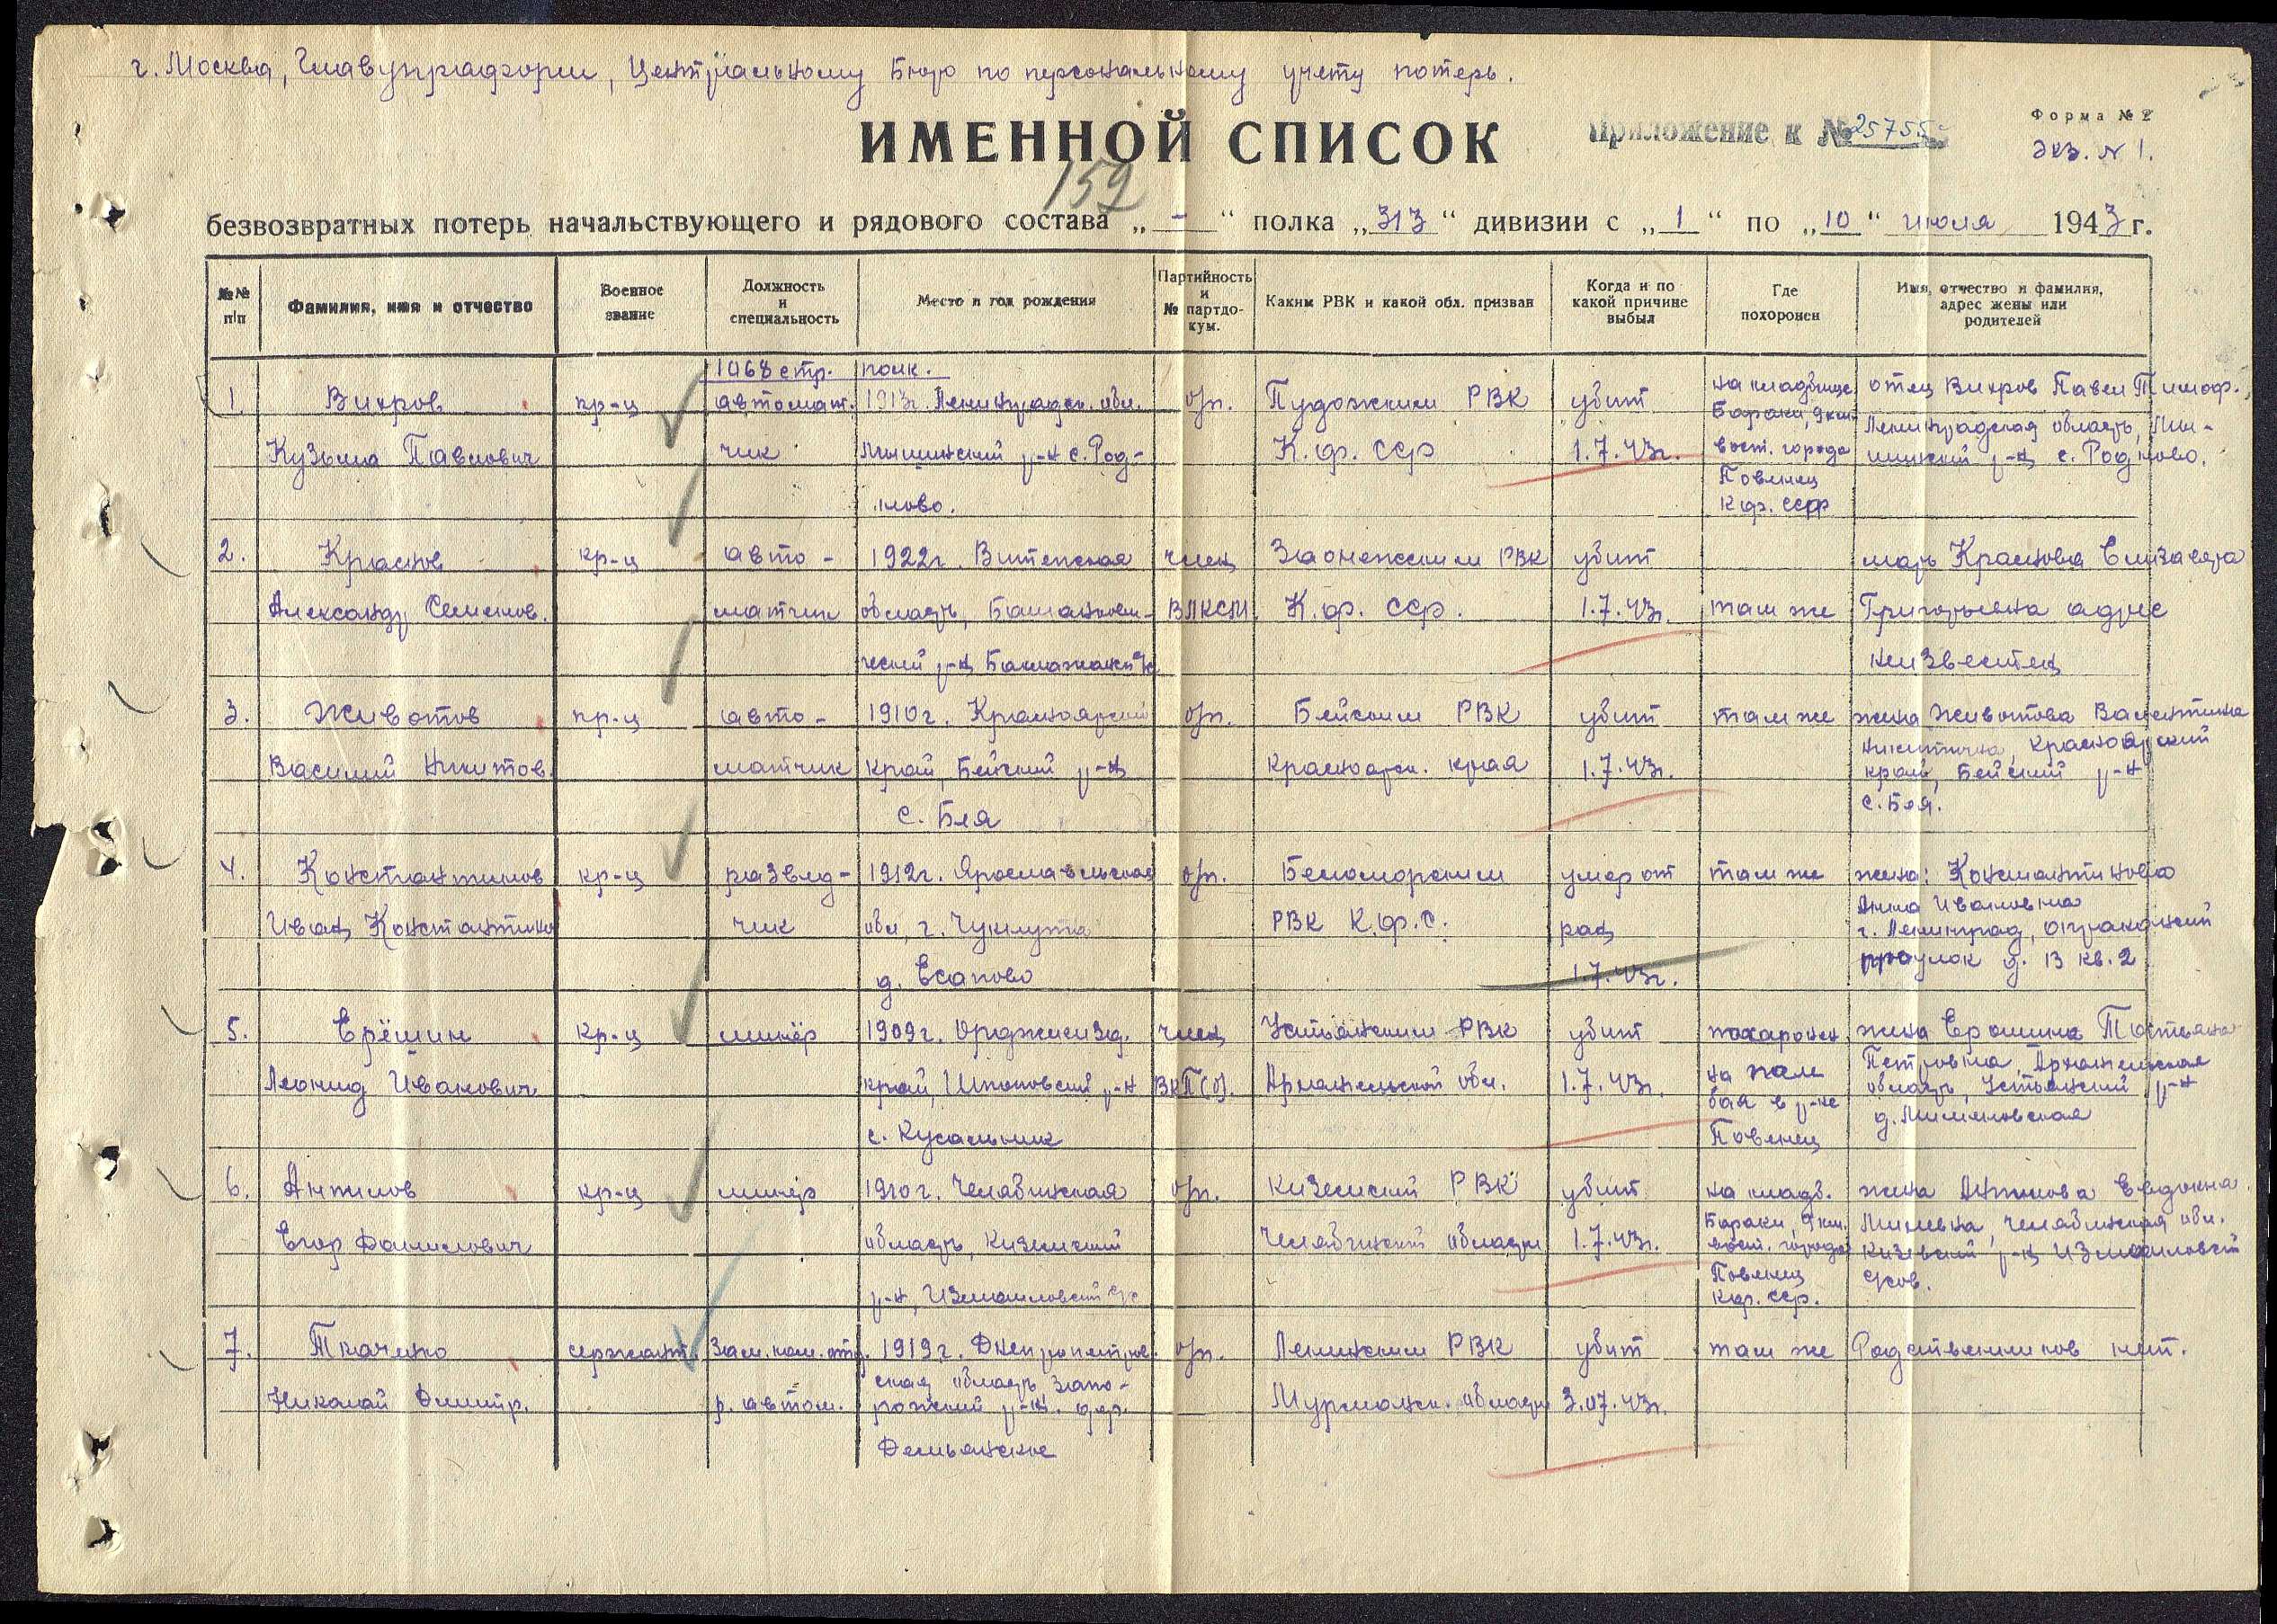 г. Москва, Главупраформ, Центральному Бюро по персональному учету потерь.
ИМЕННОЙ СПИСОК
Приложение к № 25755с
Форма № 2
Экз. № 1.
159
безвозвратных потерь начальствующего и рядового состава „ - “ полка „ 313 “ дивизии с „ 1 “ по „ 10 “ июля 1943 г.
№№ п/п
Фамилия, имя и отчество
Военное звание
Должность и специальность
Место и год рождения
Партийность и № партдокум.
Каким РВК и какой обл. призван
Когда и по какой причине выбыл
Где похоронен
Имя, отчество и фамилия, адрес жены или родителей
1068 стр. полк.
1. Вихров кр-ц автомат. 1913г. Ленинградск. обл. б/п. Пудожским РВК убит на кладбище отец Вихров Павел Тимоф.
Бараки, 9 км Ленинградская область, Мги-
Кузьма Павлович чик Мгинский р-н с. Род- К.ф. ССР 1.7.43г. вост. города нский р-н с. Родново.
Повенец
ново. К.ф. ССР
2. Краснов кр-ц авто- 1922г. Витепская член Заонежским РВК убит мать Краснова Елизавета
Александр Семенов. матчик область, ВЛКСМ. К.ф. ССР. 1.7.43г. там же Григорьевна адрес
ческий р-н неизвестен
3. Животов кр-ц авто- 1910г. Красноярский б/п. Бейским РВК убит там же жена Животова Валентина
Никитична, Красноярский
Василий Никитов. матчик край, Бейский р-н Красноярск. края 1.7.43г. край, Бейский р-н
с. Бея с. Бея.
4. Константинов кр-ц развед- 1912г. Ярославльская б/п. Беломорским умер от там же жена: Константинова
Анна Ивановна
Иван Константинов чик обл., г. РВК К.ф.С. ран г. Ленинград,
д. Есапово 1.7.43г. проулок д. 13 кв. 2
5. Ерёмин кр-ц минёр 1909г. Орджонизд. член Устьянским РВК убит похоронен жена Еромина Татьяна
Петровна, Архангельская
Леонид Иванович край, Шпаковский р-н ВКП(б). Архангельской обл. 1.7.43г. на поле область, Устьянский р-н
боя в р-не
с. Повенец д.
6. Антипов кр-ц минёр 1910г. Челябинская б/п. Кизельский РВК убит на кладб. жена Антипова Евдокия
Бараки, 9 км. Челябинская обл.
Егор Данилович область, Челябинской области 1.7.43г. вост. города р-н Измайловский
Повенец
р-н, Измайловский с/с К.ф. ССР. с/сов.
7. Ткаченко сержант. Зам. ком. отд. 1919г. Днепропетров. б/п. Ленинским РВК убит там же Родственников нет.
ская область, Запо-
Николай Дмитр. р. автом. рожский р-н. дер. Мурманск. области 3.07.43г.
Демьянское